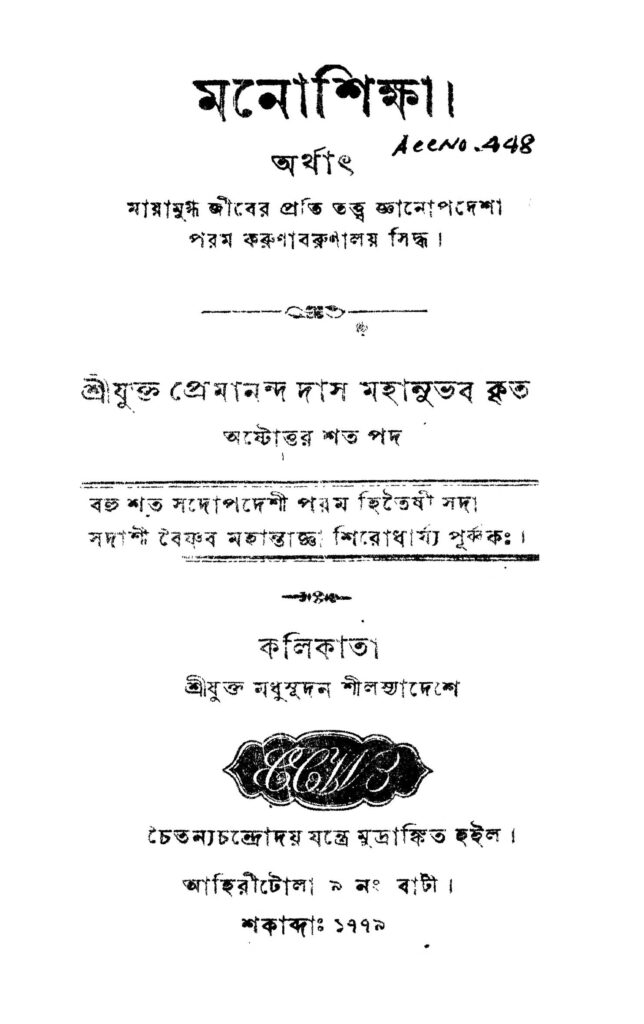 মনোশিক্ষা।
AccNo. 448
অর্থাৎ
মায়ামুগ্ধ জীবের প্রতি তত্ত্ব জ্ঞানোপদেশা
পরম করুণাবরুণালয় সিদ্ধ।
শ্রীযুক্ত প্রেমানন্দ দাস মহানুভব কৃত
অষ্টোত্তর শত পদ
বহু শত সদোপদেশী পরম হিতৈষী সদা
সদাশী বৈষ্ণব মহান্তাজ্ঞা শিরোধার্য্য পূর্ব্বকঃ।
কলিকাতা
শ্রীযুক্ত মধুসূদন শীলস্যাদেশে
চৈতন্যচন্দ্রোদয় যন্ত্রে মুদ্রাঙ্কিত হইল।
আহিরীটোলা ৯ নং বাটী।
শকাব্দাঃ ১৭৭৯